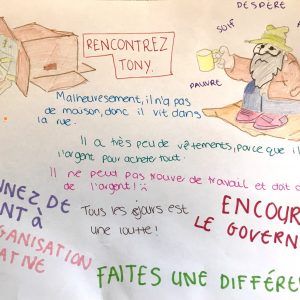 DÉSPÉRÉ
SOIF
PAUVRE
RENCONTREZ
TONY.
Malheuresement, il n'a pas
de maison, donc il vit dans
la rue.
Il a très peu de vêtements, parce que il
l'argent pour acheter tout.
Il ne peut pas trouver de travail et doit
de l'argent!
Tous les jours est
une lutte!
NEZ DE
NT À
GANISATION
ATIVE
ENCOUR
LE GOVERN
FAITES UNE DIFFÉRE